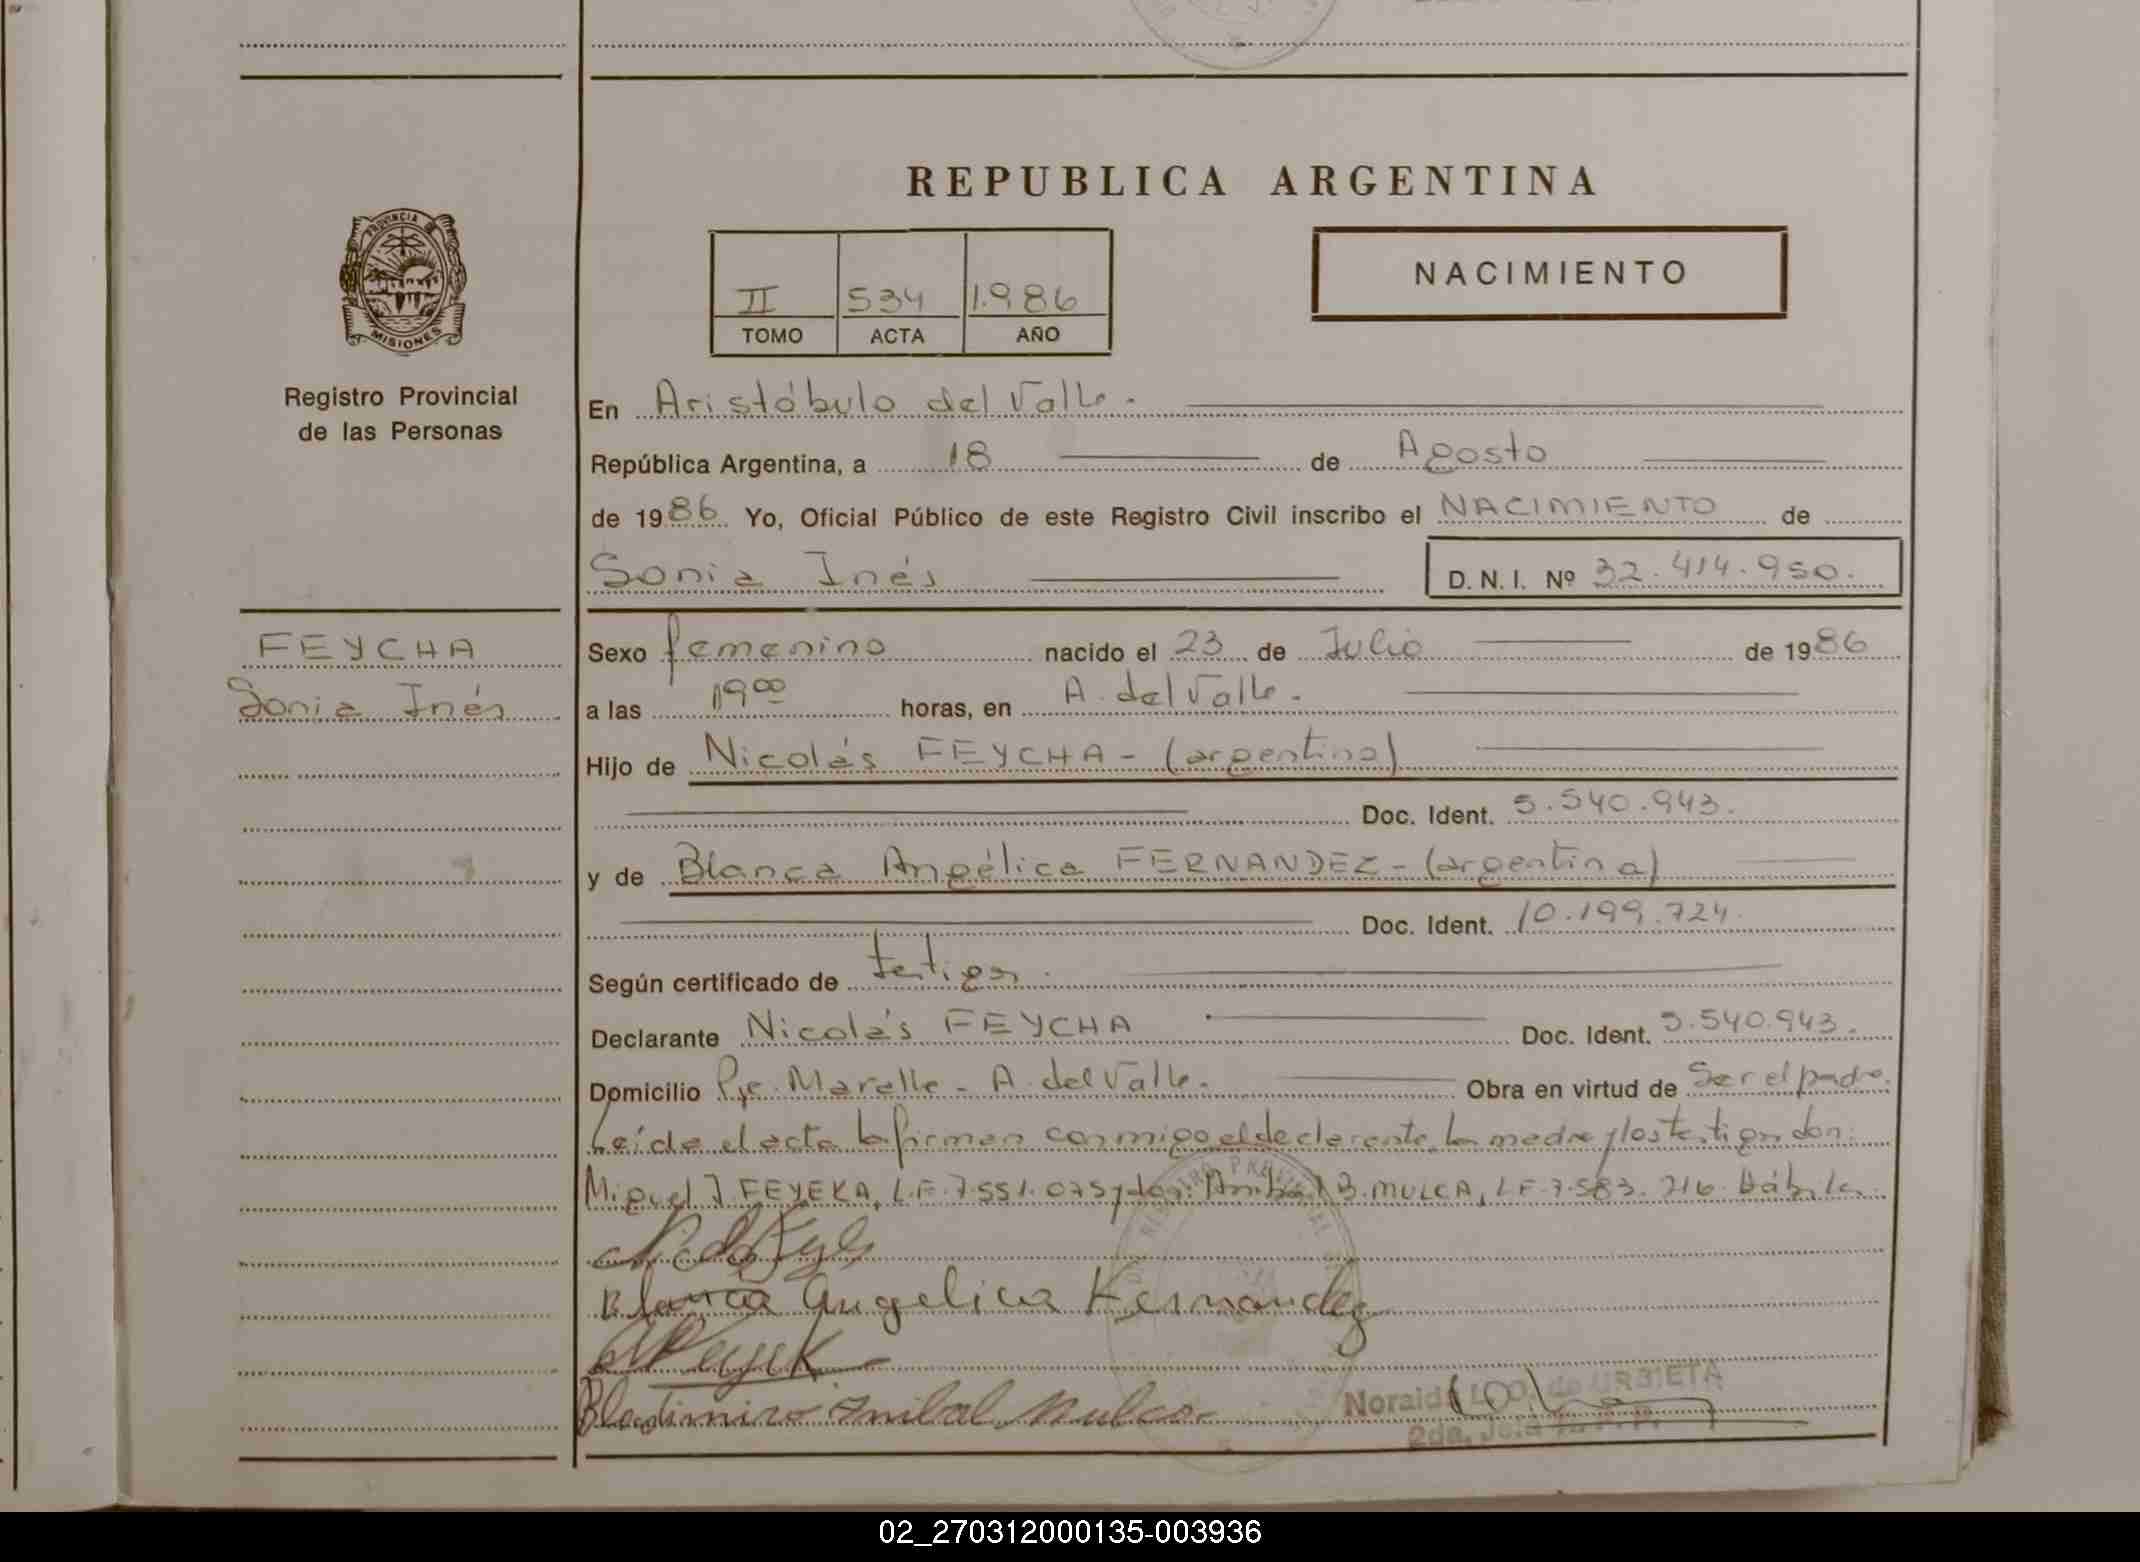 REPUBLICA ARGENTINA
PROVINCIA DE
MISIONES
Registro Provincial
de las Personas
II 534 1.986
TOMO ACTA AÑO
NACIMIENTO
En Aristóbulo del Valle.
República Argentina, a 18 de Agosto
de 1986 Yo, Oficial Público de este Registro Civil inscribo el NACIMIENTO de
Sonia Inés D. N. I. Nº 32.414.950.
FEYCHA
Sonia Inés
Sexo femenino nacido el 23 de Julio de 1986
a las 19 00 horas, en A. del Valle.
Hijo de Nicolás FEYCHA - (argentino)
Doc. Ident. 5.540.943.
y de Blanca Angélica FERNANDEZ - (argentina)
Doc. Ident. 10.199.724.
Según certificado de testigos.
Declarante Nicolás FEYCHA Doc. Ident. 5.540.943.
Domicilio Pje. - A. del Valle. Obra en virtud de Ser el padre.
Leída el acta la firman conmigo el declarante, la madre y los testigos don:
Miguel J. FEYEKA, L.E. 7.551.075 y don: Aníbal B. MULCA, L.E. 7.583.716.
Blanca Angelica Fernandez
Bladimiro Anibal Mulca
Noraid de URBIETA
2da.
02_270312000135-003936